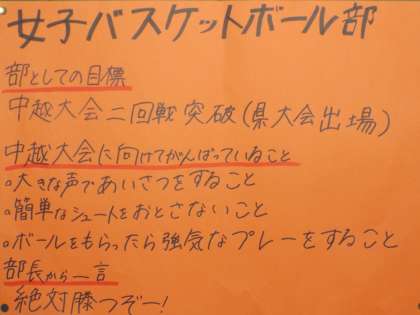 女子バスケットボール部
部としての目標
中越大会二回戦突破(県大会出場)
中越大会に向けてがんばっていること
○大きな声であいさつをすること
○簡単なシュートをおとさないこと
○ボールをもらったら強気なプレーをすること
部長から一言
●絶対勝つぞー!